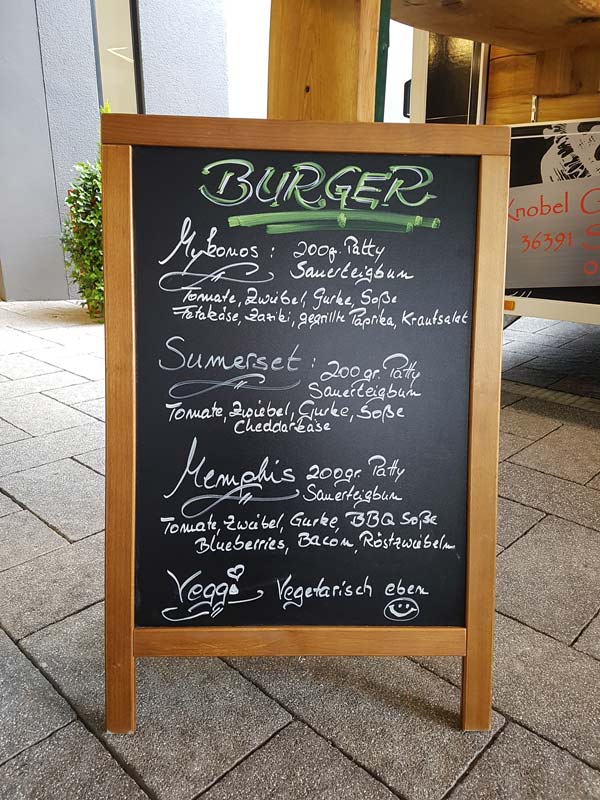 BURGER
Mykonos : 200g. Patty
Sauerteigbun
Tomate, Zwiebel, Gurke, Soße
Fetakäse, Zaziki, gegrillte Paprika, Krautsalat
Sumerset : 200gr. Patty
Sauerteigbun
Tomate, Zwiebel, Gurke, Soße
Cheddarkäse
Memphis 200gr. Patty
Sauerteigbun
Tomate, Zwiebel, Gurke, BBQ Soße
Blueberries, Bacon, Röstzwiebeln
Veggi Vegetarisch eben
Knobel
36391